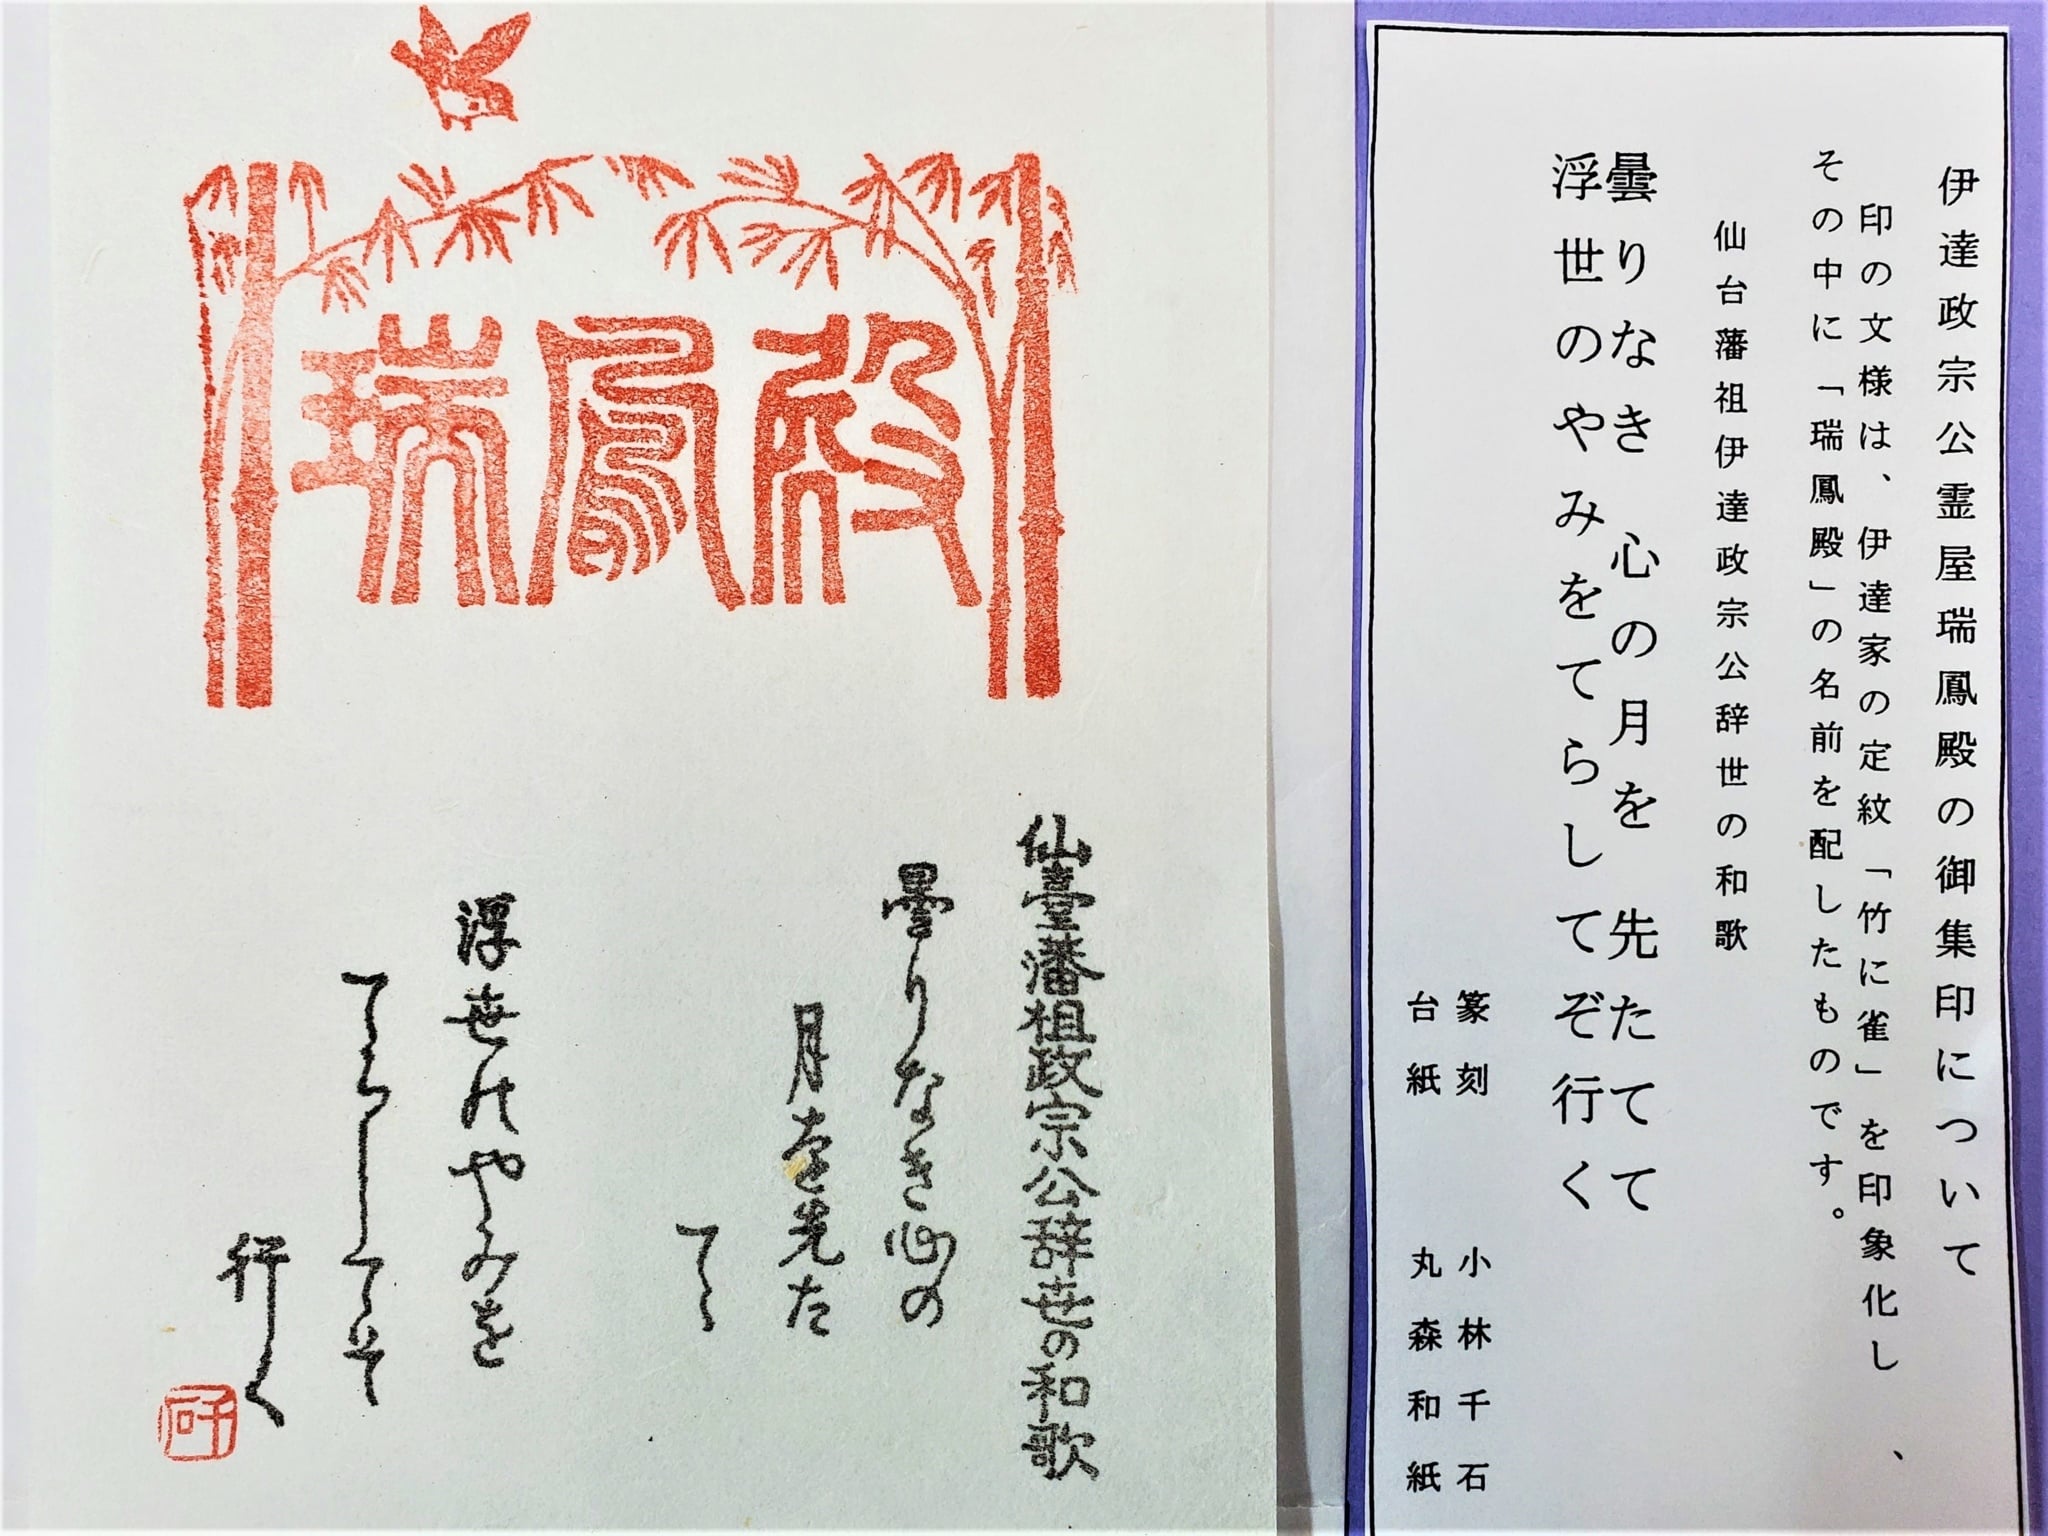 伊達政宗公霊屋瑞鳳殿の御集印について
印の文様は、伊達家の定紋「竹に雀」を印象化し、
その中に「瑞鳳殿」の名前を配したものです。
仙台藩祖伊達政宗公辞世の和歌
曇りなき 心の月を 先たてて
浮世のやみをてらしてぞ行く
篆刻 小林千石
台紙 丸森和紙
瑞鳳殿
仙臺藩祖政宗公辞世の和歌
曇りなき心の
月を先た
てゝ
浮世のやみを
てらしてそ
行く
千石